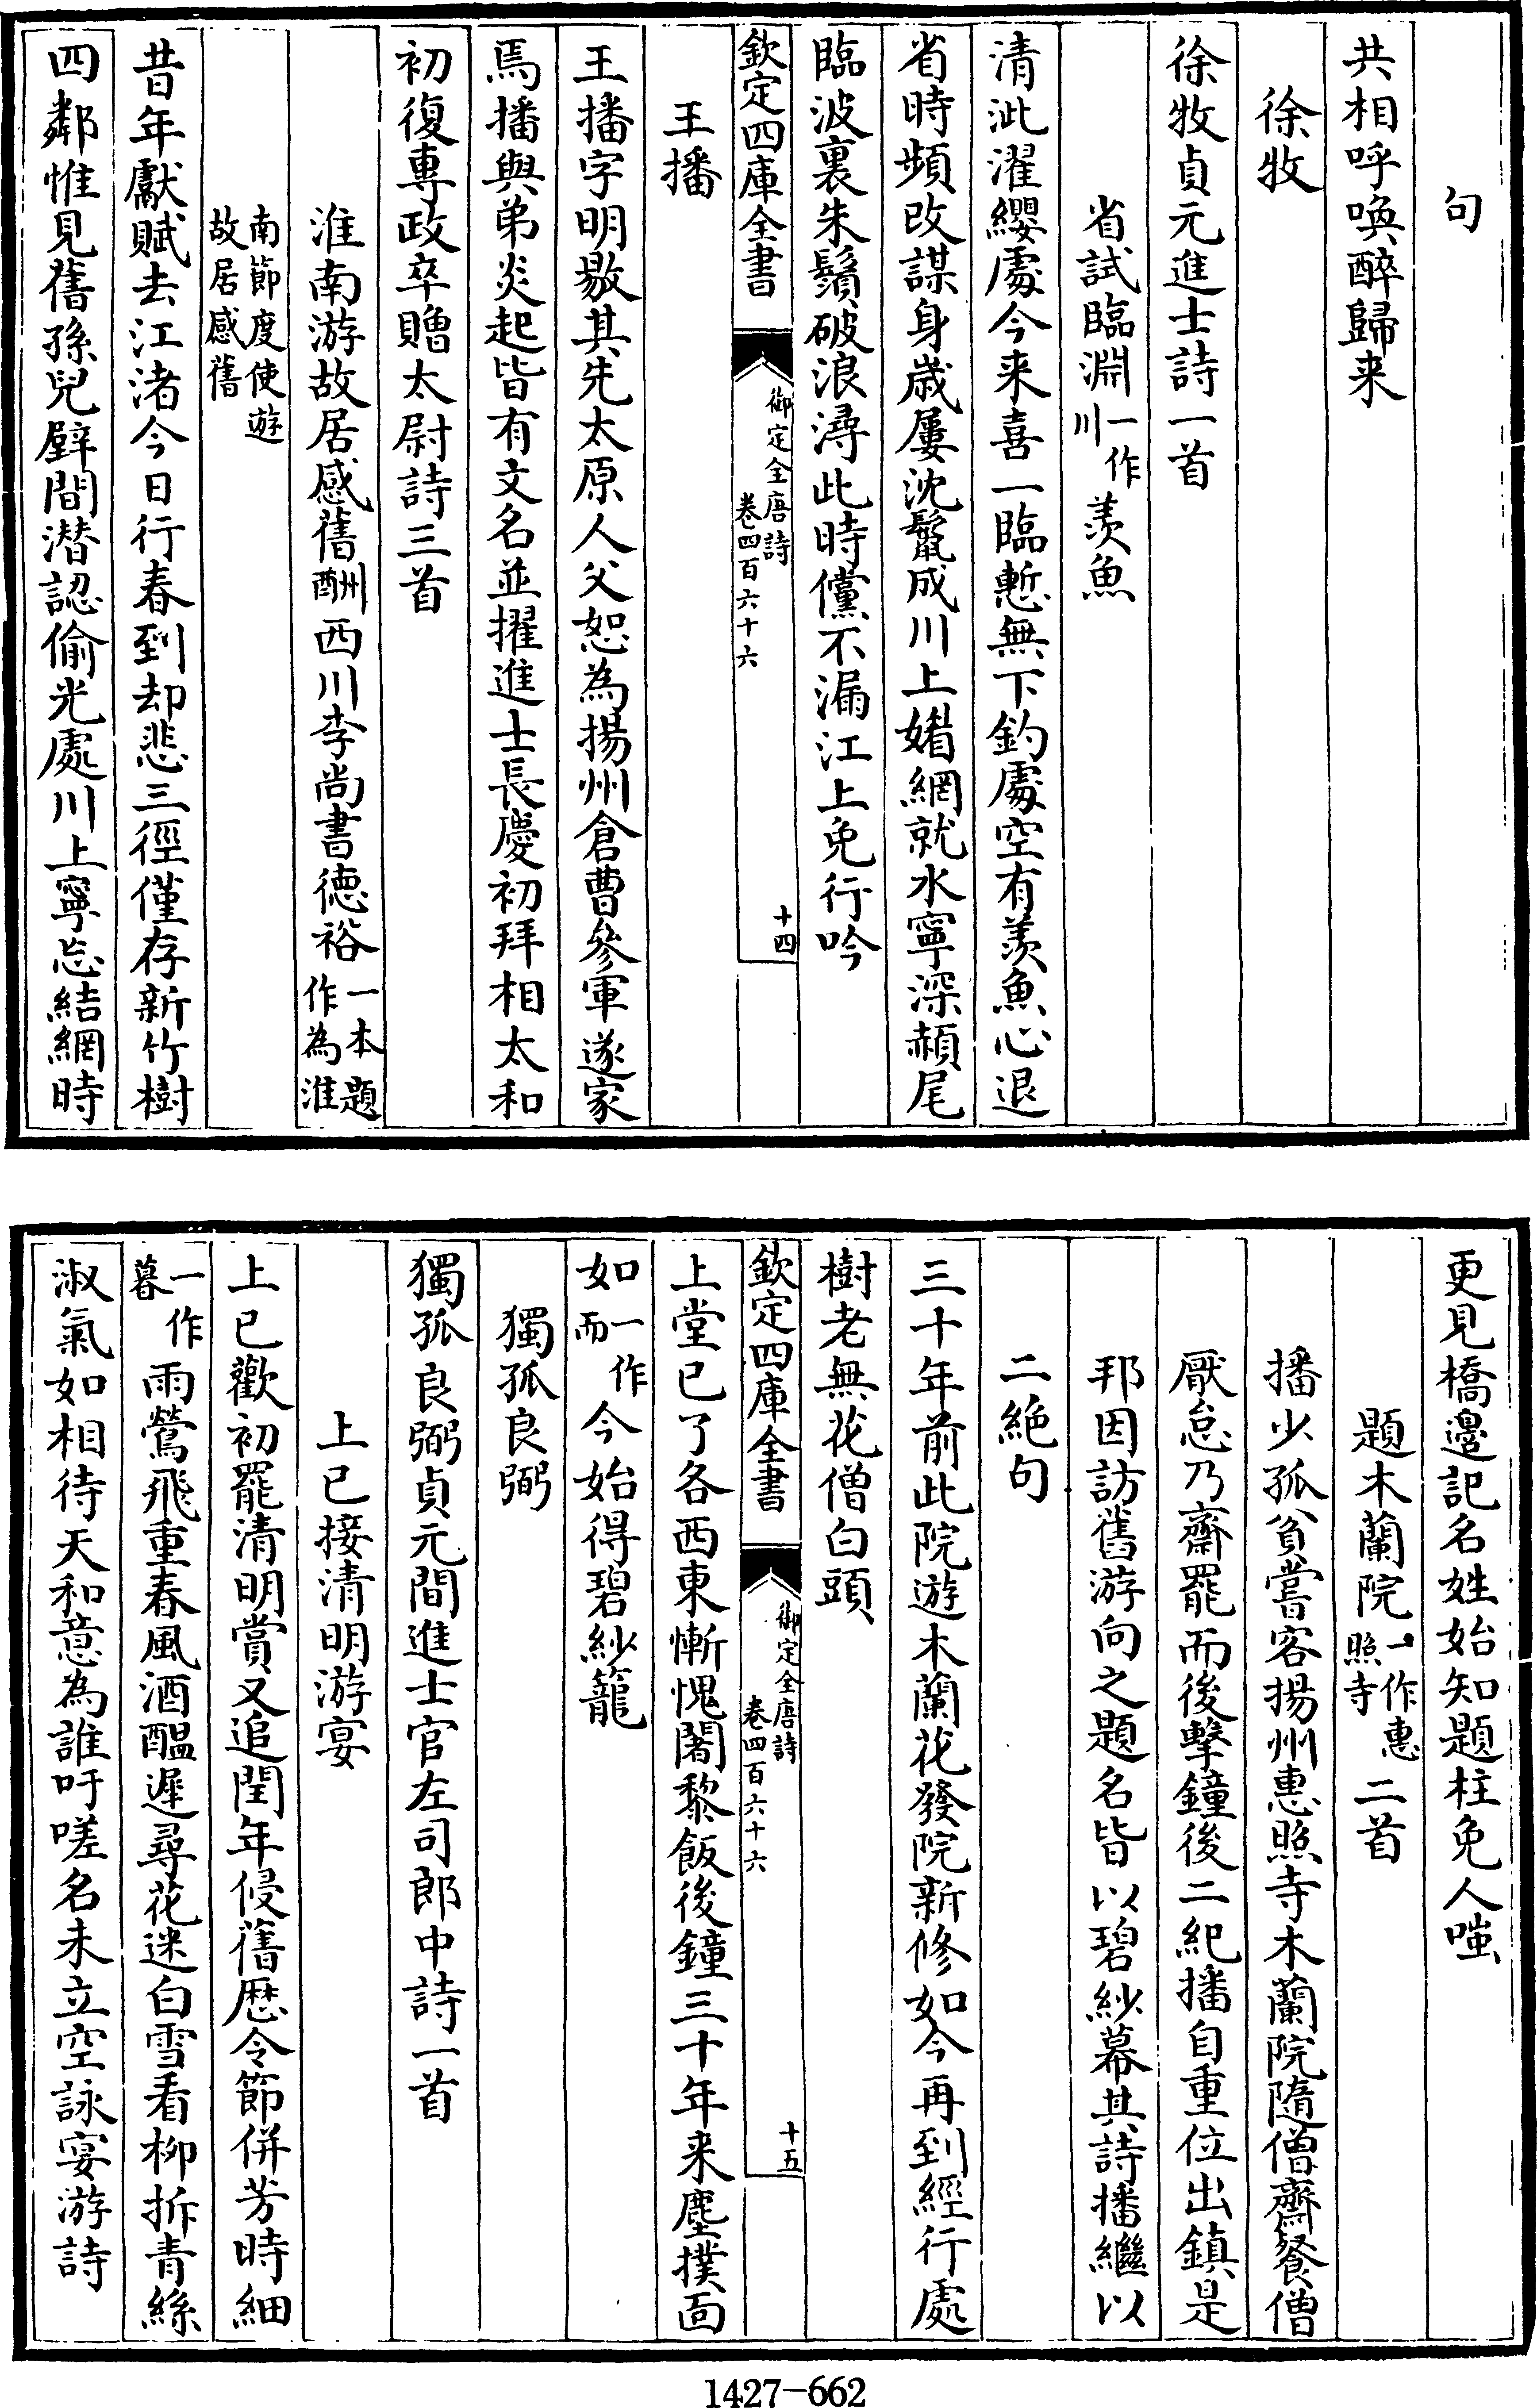 句
共相呼喚醉歸来
徐牧
徐牧貞元進士詩一首
省試臨淵一作川羡魚
清泚濯纓處今来喜一臨慙無下釣處空有羨魚心退
省時頻改謀身嵗屢沈鬛成川上媘網就水寧深赬尾
臨波裏朱鬚破浪潯此時儻不漏江上免行吟
欽定四庫全書
御定全唐詩
卷四百六十六
十四
王播
王播字明敭其先太原人父恕為揚州倉曹參軍遂家
焉播與弟炎起皆有文名並擢進士長慶初拜相太和
初復專政卒贈太尉詩三首
淮南游故居感舊酬西川李尚書徳裕一本題作為淮
南節度使遊故居感舊
昔年獻賦去江渚今日行春到却悲三徑僅存新竹樹
四鄰惟見舊孫兒壁間潜認偷光處川上寧忘結網時
更見橋邊記名姓始知題柱免人嗤
題木蘭院一作惠照寺二首
播少孤貧嘗客揚州惠照寺木蘭院隨僧齋餐僧
厭怠乃齋罷而後擊鐘後二紀播自重位出鎮是
邦因訪舊游向之題名皆以碧紗幕其詩播繼以
二絶句
三十年前此院遊木蘭花發院新修如今再到經行處
樹老無花僧白頭
欽定四庫全書
御定全唐詩
卷四百六十六
十五
上堂已了各西東慚愧闍黎飯後鐘三十年来塵撲面
如一作而今始得碧紗籠
獨孤良弼
獨孤良弼貞元間進士官左司郎中詩一首
上巳接清明游宴
上巳歡初罷清明賞又追閏年侵舊歴令節併芳時細
一作暮雨鶯飛重春風酒醖遲尋花迷白雪看柳拆青絲
淑氣如相待天和意為誰吁嗟名未立空詠宴游詩
1427-662